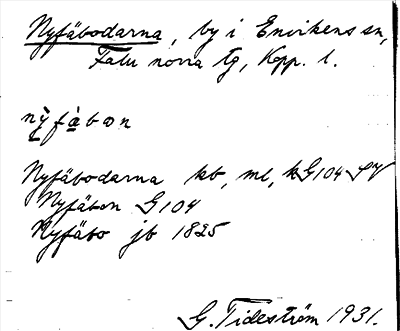 Nyfäbodarna, by i Envikens sn,
Falu norra tg, Kopp. l.
nỳfàbon
Nyfäbodarna kb, ml, kG104 SV
Nyfäbon G104
Nyfäbo jb 1825
G. Tideström 1931.